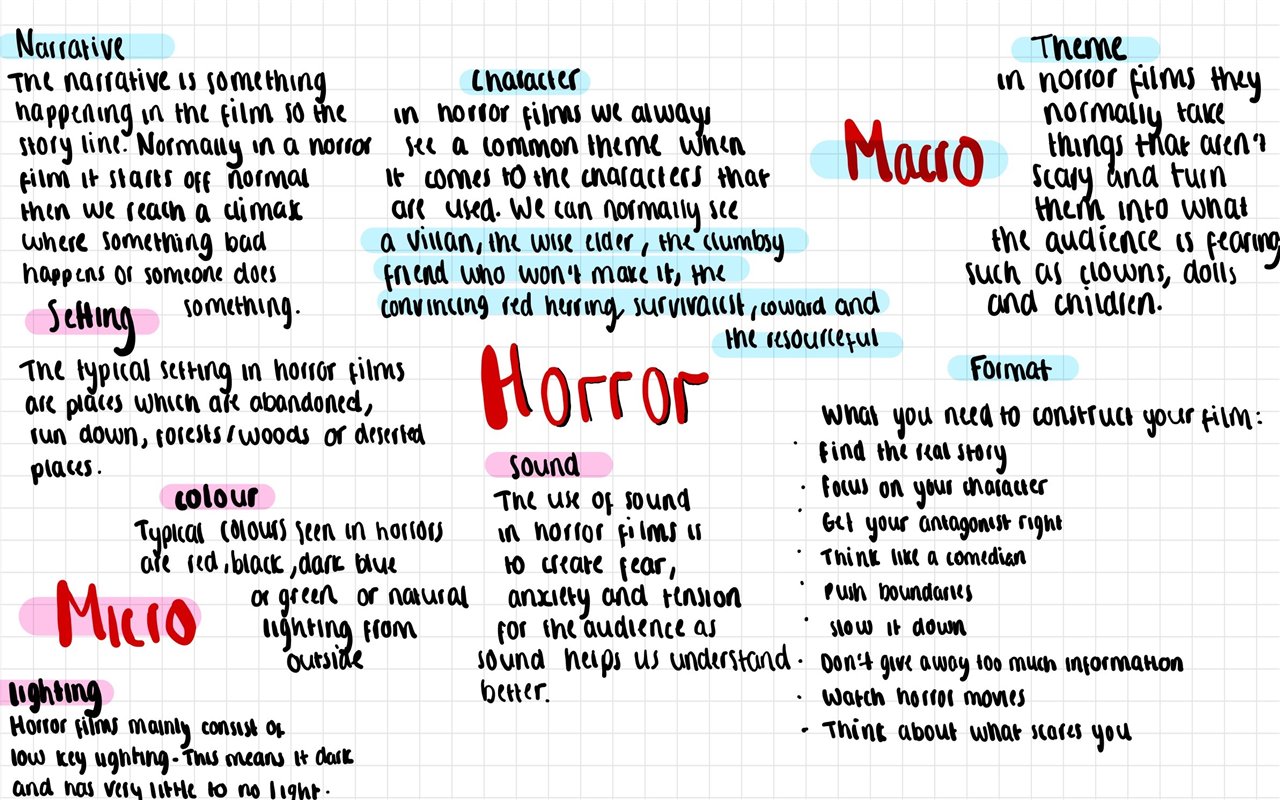 Narrative
The narrative is something
happening in the film so the
story line. Normally in a horror
film it starts off normal
then we reach a climax
where something bad
happens or someone does
something.
Character
in horror films we always
see a common theme when
it comes to the characters that
are used. We can normally see
a villan, the wise elder, the clumbsy
friend who won't make it, the
convincing red herring, survivalist, coward and
the resourceful
Macro
Theme
in horror films they
normally take
things that aren't
scary and turn
them into what
the audience is fearing
such as clowns, dolls
and children.
Setting
The typical setting in horror films
are places which are abandoned,
run down, forests/woods or deserted
places.
Horror
Format
What you need to construct your film:
· Find the real story
· Focus on your character
· Get your antagonist right
· Think like a comedian
· Push boundaries
· Slow it down
· Don't give away too much information
· Watch horror movies
· Think about what scares you
colour
Typical colours seen in horrors
are red, black, dark blue
or green or natural
lighting from
outside
Sound
The use of sound
in horror films is
to create fear,
anxiety and tension
for the audience as
sound helps us understand
better.
Micro
lighting
Horror films mainly consist of
low key lighting. This means it dark
and has very little to no light.